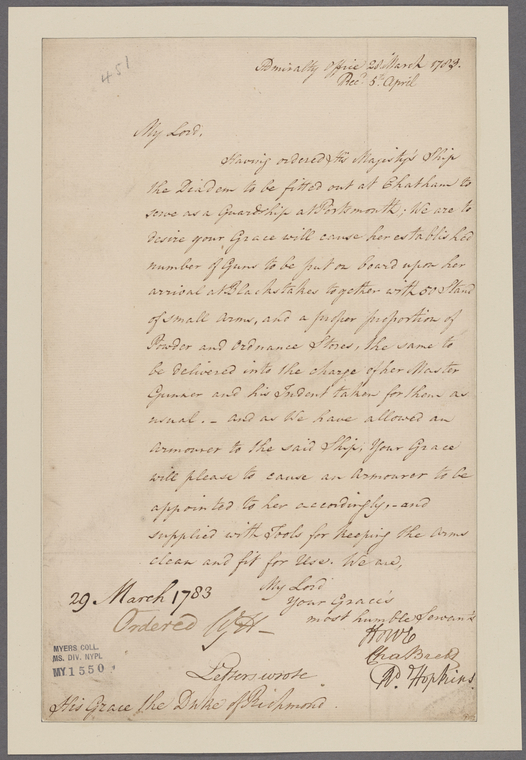 451
Admiralty Office 28 March 1783.
Rec.d 5th April
My Lord,
Having ordered His Majesty's Ship
the Diadem to be fitted out at Chatham to
serve as a Guardship at Portsmouth; We are to
desire your Grace will cause her established
number of Guns to be put on board upon her
arrival at Blackstakes together with 50 Stand
of small Arms, and a proper proportion of
Powder and Ordnance Stores, the same to
be delivered into the charge of her Master
Gunner and his Indent taken for them as
usual. – and as We have allowed an
Armourer to the said Ship, Your Grace
will please to cause an Armourer to be
appointed to her accordingly, – and
supplied with Tools for keeping the Arms
clean and fit for Use. We are,
My Lord
Your Grace's
most humble Servants
Howe
Cha Brett
Rd. Hopkins
29 March 1783
Ordered
Letters wrote
His Grace the Duke of Richmond.
MYERS COLL.
MS. DIV. NYPL
MY 1550